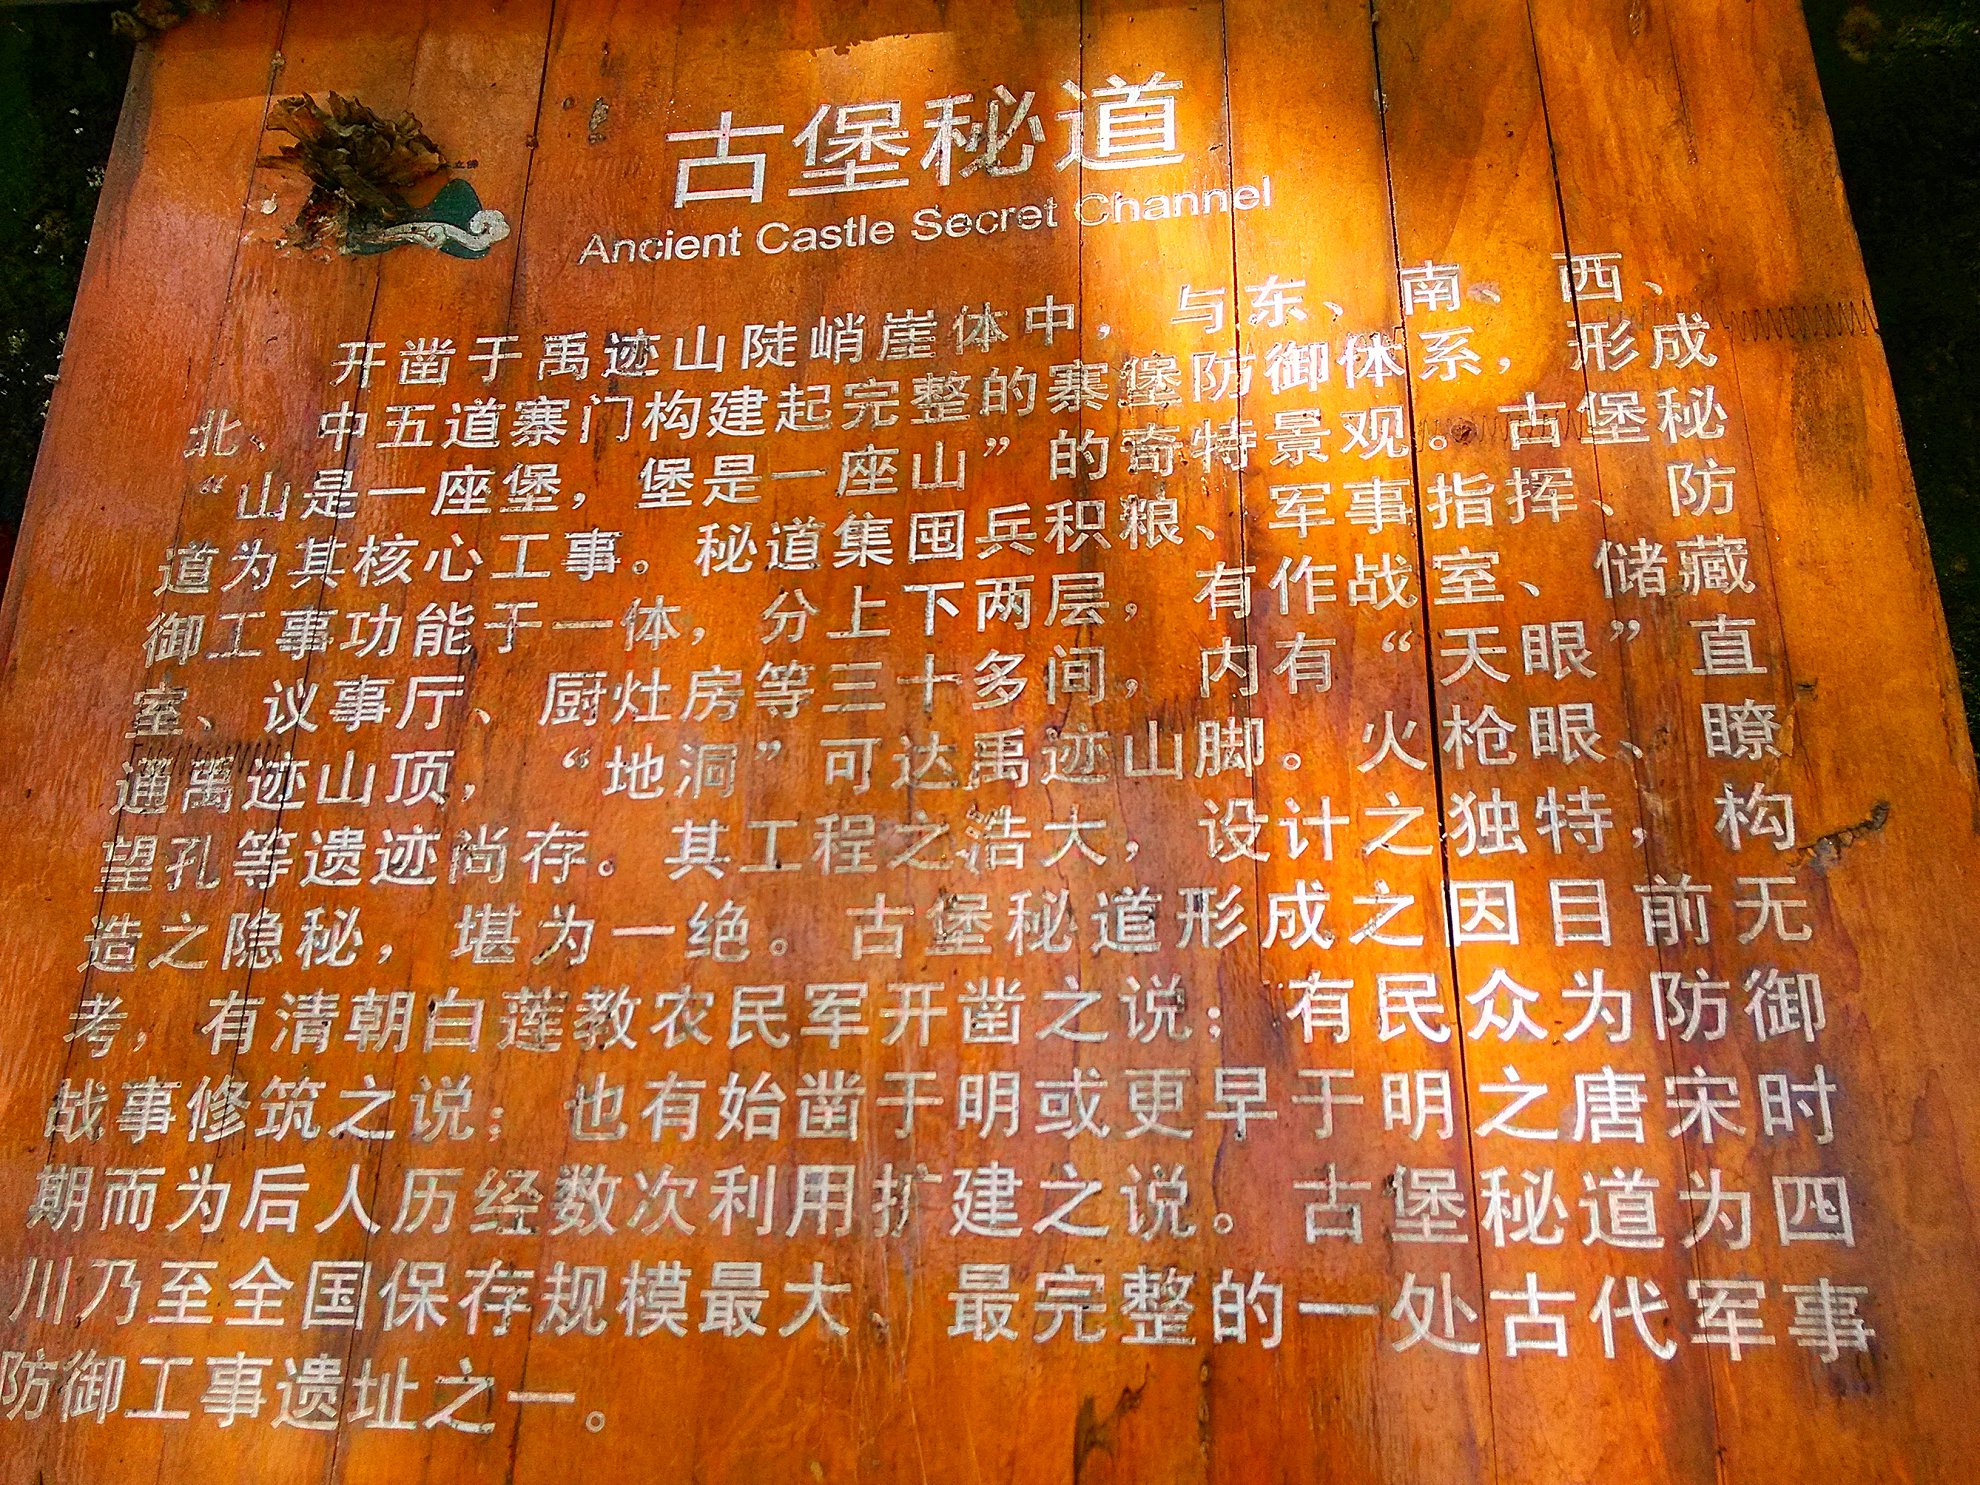 古堡秘道
Ancient Castle Secret Channel
开凿于禹迹山陡峭崖体中，与东、南、西、
北、中五道寨门构建起完整的寨堡防御体系，形成
“山是一座堡，堡是一座山”的奇特景观。古堡秘
道为其核心工事。秘道集囤兵积粮、军事指挥、防
御工事功能于一体，分上下两层，有作战室、储藏
室、议事厅、厨灶房等三十多间，内有“天眼”直
通禹迹山顶，“地洞”可达禹迹山脚。火枪眼、瞭
望孔等遗迹尚存。其工程之浩大，设计之独特，构
造之隐秘，堪为一绝。古堡秘道形成之因目前无
考，有清朝白莲教农民军开凿之说；有民众为防御
战事修筑之说；也有始凿于明或更早于明之唐宋时
期而为后人历经数次利用扩建之说。古堡秘道为四
川乃至全国保存规模最大、最完整的一处古代军事
防御工事遗址之一。